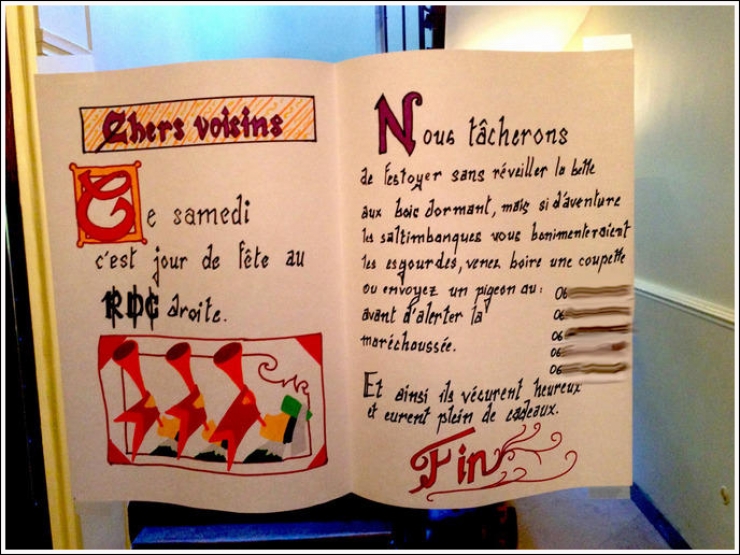 Chers voisins
Ce samedi
c'est jour de fête au
RDC droite.
Nous tâcherons
de festoyer sans réveiller la belle
aux bois dormant, mais si d'aventure
les saltimbanques vous bonimenteraient
les esgourdes, venez boire une coupette
ou envoyez un pigeon au : 06
avant d'alerter la 06
maréchoussée. 06
06
06
Et ainsi ils vécurent heureux
et eurent plein de cadeaux.
Fin